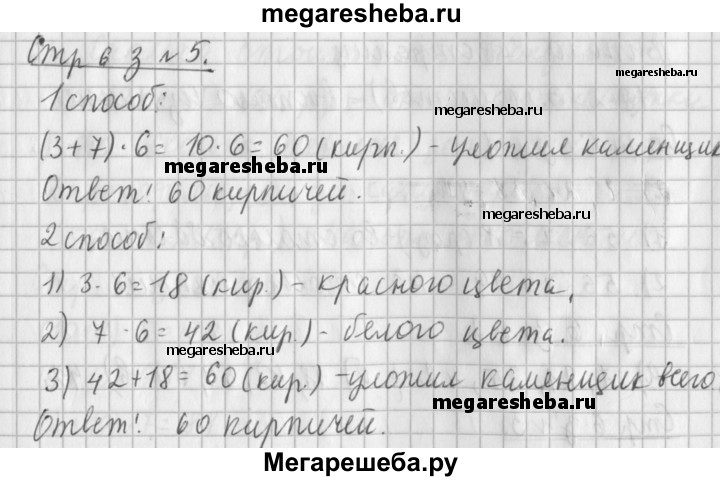 megaresheba.ru
Стр 6 з №5.
megaresheba.ru
1 способ:
megaresheba.ru
(3+7)·6= 10·6=60(кирп.)-уложил каменщик
megaresheba.ru
Ответ! 60 кирпичей.
megaresheba.ru
2 способ:
1) 3·6=18 (кир.)- красного цвета,
2) 7·6= 42 (кир.)- белого цвета.
megaresheba.ru
3) 42+18=60(кир.)-уложил каменщик всего
megaresheba.ru
Ответ! 60 кирпичей.
Мегарешеба.ру